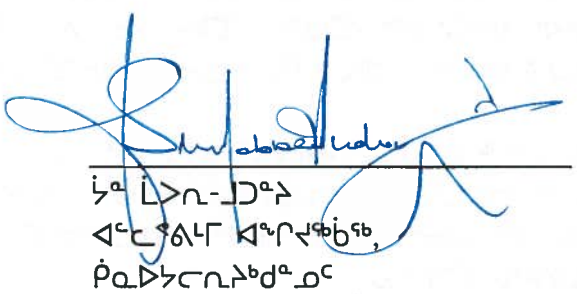 ᔮᓐ ᒫᐳᑎ-ᒧᑐᓐᔨ
ᐊᓪᓚᕝᕕᒻᒥ ᐊᖏᔪᖅᑳᖅ,
ᑮᓇᐅᔭᓕᑎᔨᒃᑯᓐᓄᑦ